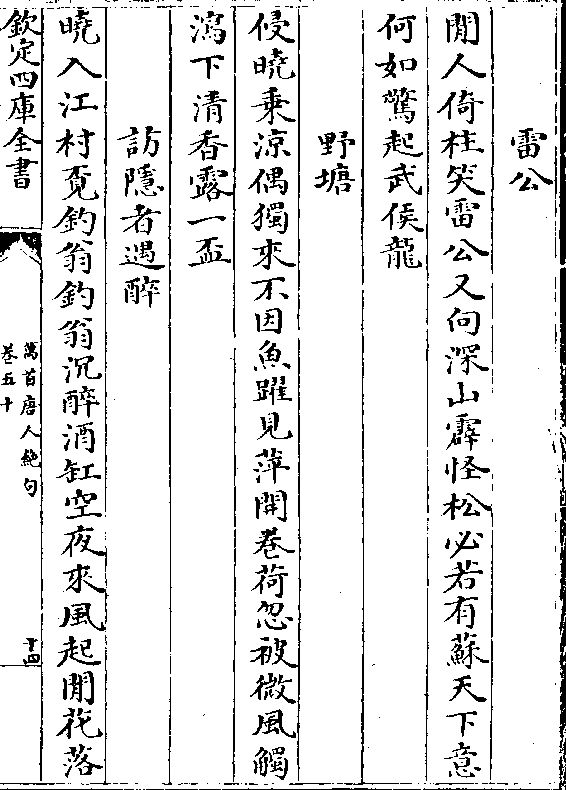 雷公
閒人倚柱笑雷公又向深山霹怪松必若有蘇天下意
何如驚起武侯龍
野塘
侵曉乗涼偶獨來不因魚躍見萍開巻荷忽被微風觸
瀉下清香露一盃
訪隱者遇醉
曉入江村覔釣翁釣翁沉醉酒缸空夜來風起閒花落
欽定四庫全書
萬首唐人絶句
卷五十
十四